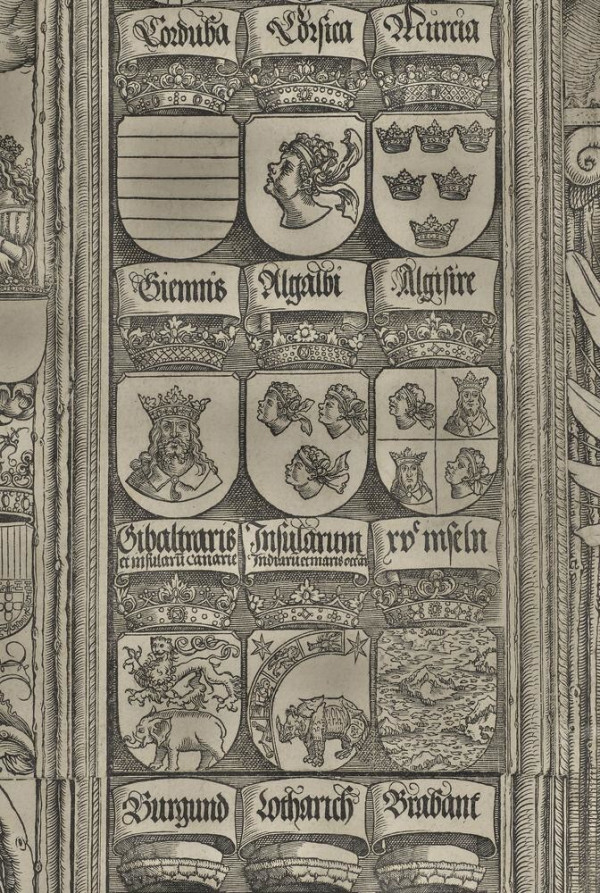 Corduba Corsica Murcia
Giennis Algalbi Algisire
Gibaltraris Insularum xvc inseln
et insularū canarie Indiarū et maris occeā
Burgund Lotharich Brabant